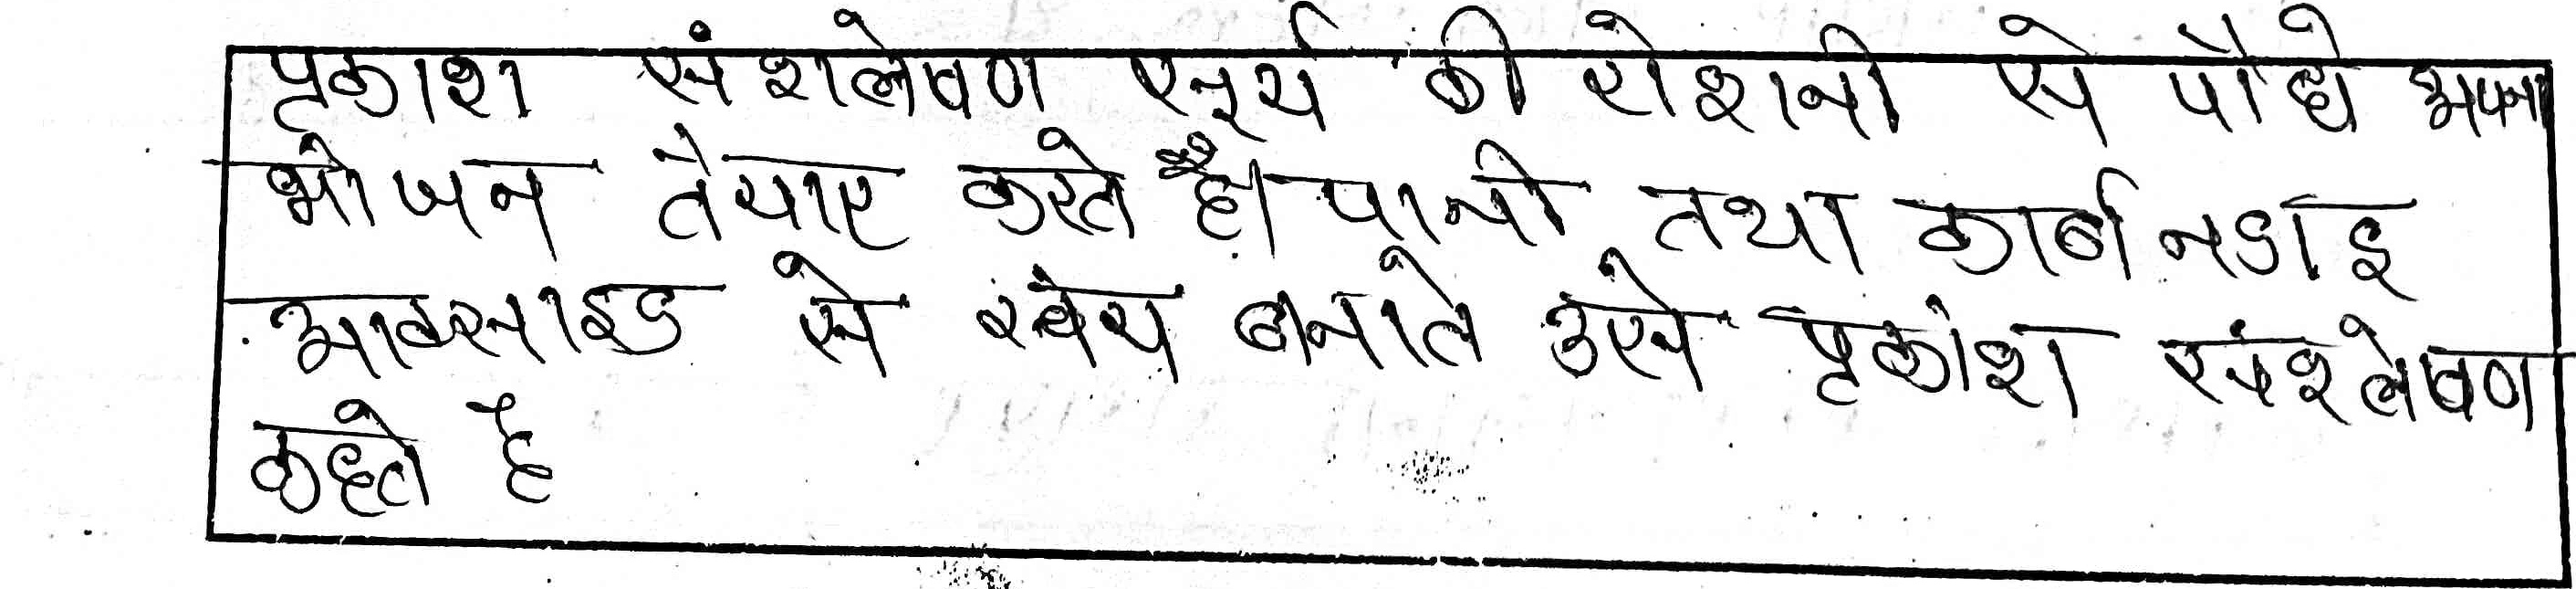 प्रकाश संशलेषण सूर्य की रोशनी से पौधे अपना
भोजन तेयार करते है। पानी तथा कार्बनडाइ
आक्साइड से स्वंय बनाते उसे प्रकाश संश्लेषण
कहते है